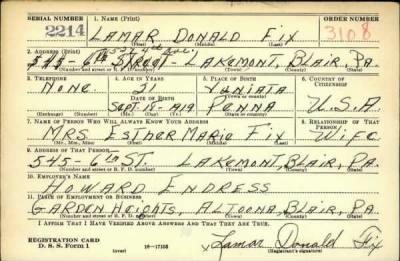 SERIAL NUMBER 1. NAME (Print) ORDER NUMBER
2214 LAMAR DONALD FIX 3108
(First) (Middle) (Last)
2. ADDRESS (Print)
545-6th STREET-LAKEMONT, BLAIR, PA.
(Number and street or R. F. D. number) (Town) (County) (State)
3. TELEPHONE 4. AGE IN YEARS 5. PLACE OF BIRTH 6. COUNTRY OF CITIZENSHIP
NONE 21 JUNIATA
DATE OF BIRTH (Town or county)
SEPT. 15-1919 PENNA U.S.A.
(Exchange) (Number) (Mo.) (Day) (Yr.) (State or country)
7. NAME OF PERSON WHO WILL ALWAYS KNOW YOUR ADDRESS 8. RELATIONSHIP OF THAT PERSON
MRS ESTHER MARIE FIX WIFE
(Mr., Mrs., Miss) (First) (Middle) (Last)
9. ADDRESS OF THAT PERSON
545-6th ST. LAKEMONT, BLAIR, PA.
(Number and street or R. F. D. number) (Town) (County) (State)
10. EMPLOYER'S NAME
HOWARD ENDRESS
11. PLACE OF EMPLOYMENT OR BUSINESS
GARDEN HEIGHTS, ALTOONA, BLAIR, PA
(Number and street or R. F. D. number) (Town) (County) (State)
I AFFIRM THAT I HAVE VERIFIED ABOVE ANSWERS AND THAT THEY ARE TRUE.
REGISTRATION CARD
D. S. S. Form 1 (over) 16-17105 x Lamar Donald Fix
(Registrant's signature)